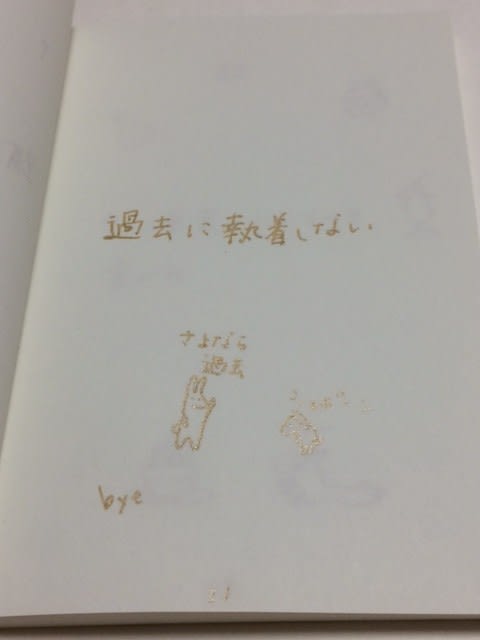 過去に執着しない
さよなら
過去
bye
21